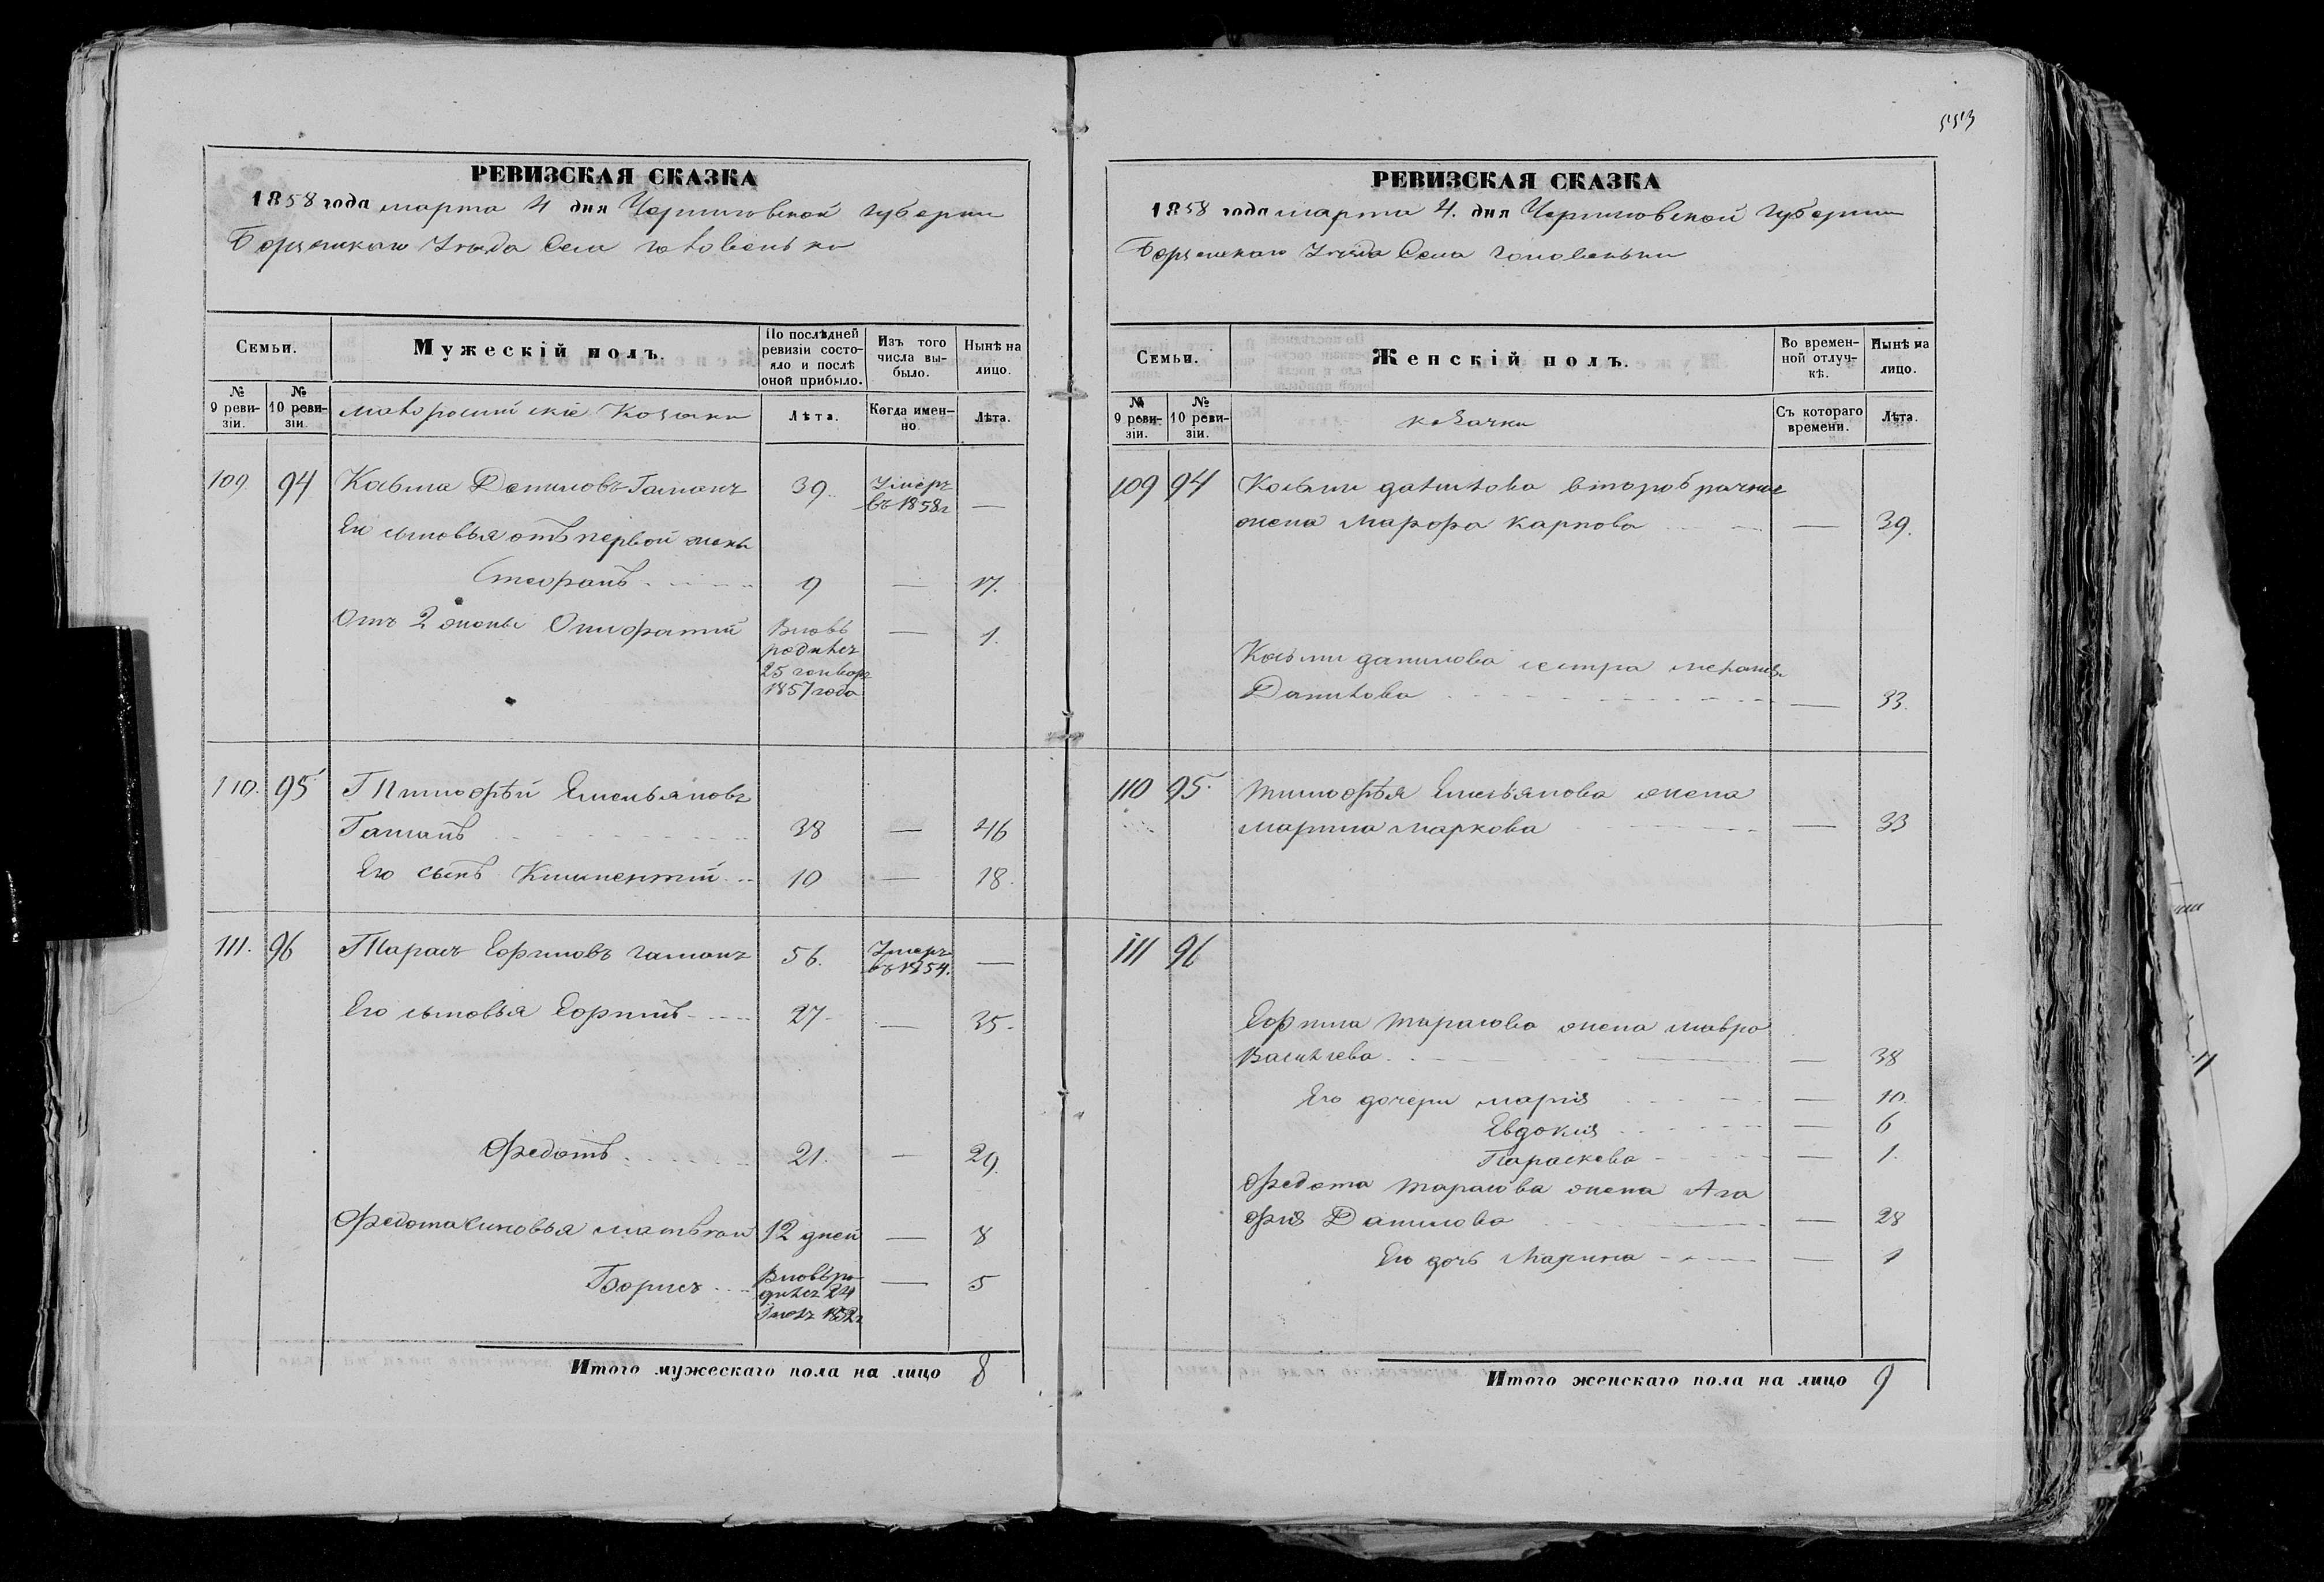 553
РЕВИЗСКАЯ СКАЗКА
1858 года марта 4 дня Черниговской губернии
Борзенскаго Уезда Села головеньки
Семьи.
Мужескій полъ.
По послѣдней ревизіи состояло и послѣ оной прибыло.
Изъ того числа выбыло.
Нынѣ на лицо.
№ 9 ревизіи.
№ 10 ревизіи.
малороссійскіе Козаки
Лѣта.
Когда именно.
Лѣта.
109 94 Козьма Даниловъ Гаманъ 39. Умеръ въ 1858г —
Его сыновья отъ первой жены
Стефанъ 9 — 17.
Отъ 2 жены Онифратій Вновь родился 25 генваря 1857 года — 1.
110. 95 Тимофѣй Емельяновъ
Гаманъ 38 — 46
Его сынъ Климентій 10 — 18.
111. 96 Тарасъ Ефимовъ гаманъ 56. Умеръ въ 1854. —
Его сыновья Ефимъ 27 — 35.
Федотъ 21. — 29.
Федота сыновья матвѣй 12 дней — 8
Борисъ Вновь родился 24 — 5
Итого мужескаго пола на лицо 8
РЕВИЗСКАЯ СКАЗКА
1858 года марта 4. дня Черниговской губернии
Борзенскаго Уезда Села головеньки
Семьи.
Женскій полъ.
Во временной отлучкѣ.
Нынѣ на лицо.
№ 9 ревизіи.
№ 10 ревизіи.
козачки
Съ котораго времени.
Лѣта.
109 94 Козьмы данилова второбрачная
жена Марфа карпова — 39.
Козьмы данилова сестра меланья
Данилова — 33.
110 95. тимофѣя Емельянова жена
марина маркова — 33
111 96
Ефима тарасова жена мавра
Василиева — 38
Его дочери марія — 10.
Евдокія — 6
Параскева — 1.
Федота тарасова жена Ага
фія Данилова — 28
Его дочь Марина — 1
Итого женскаго пола на лицо 9